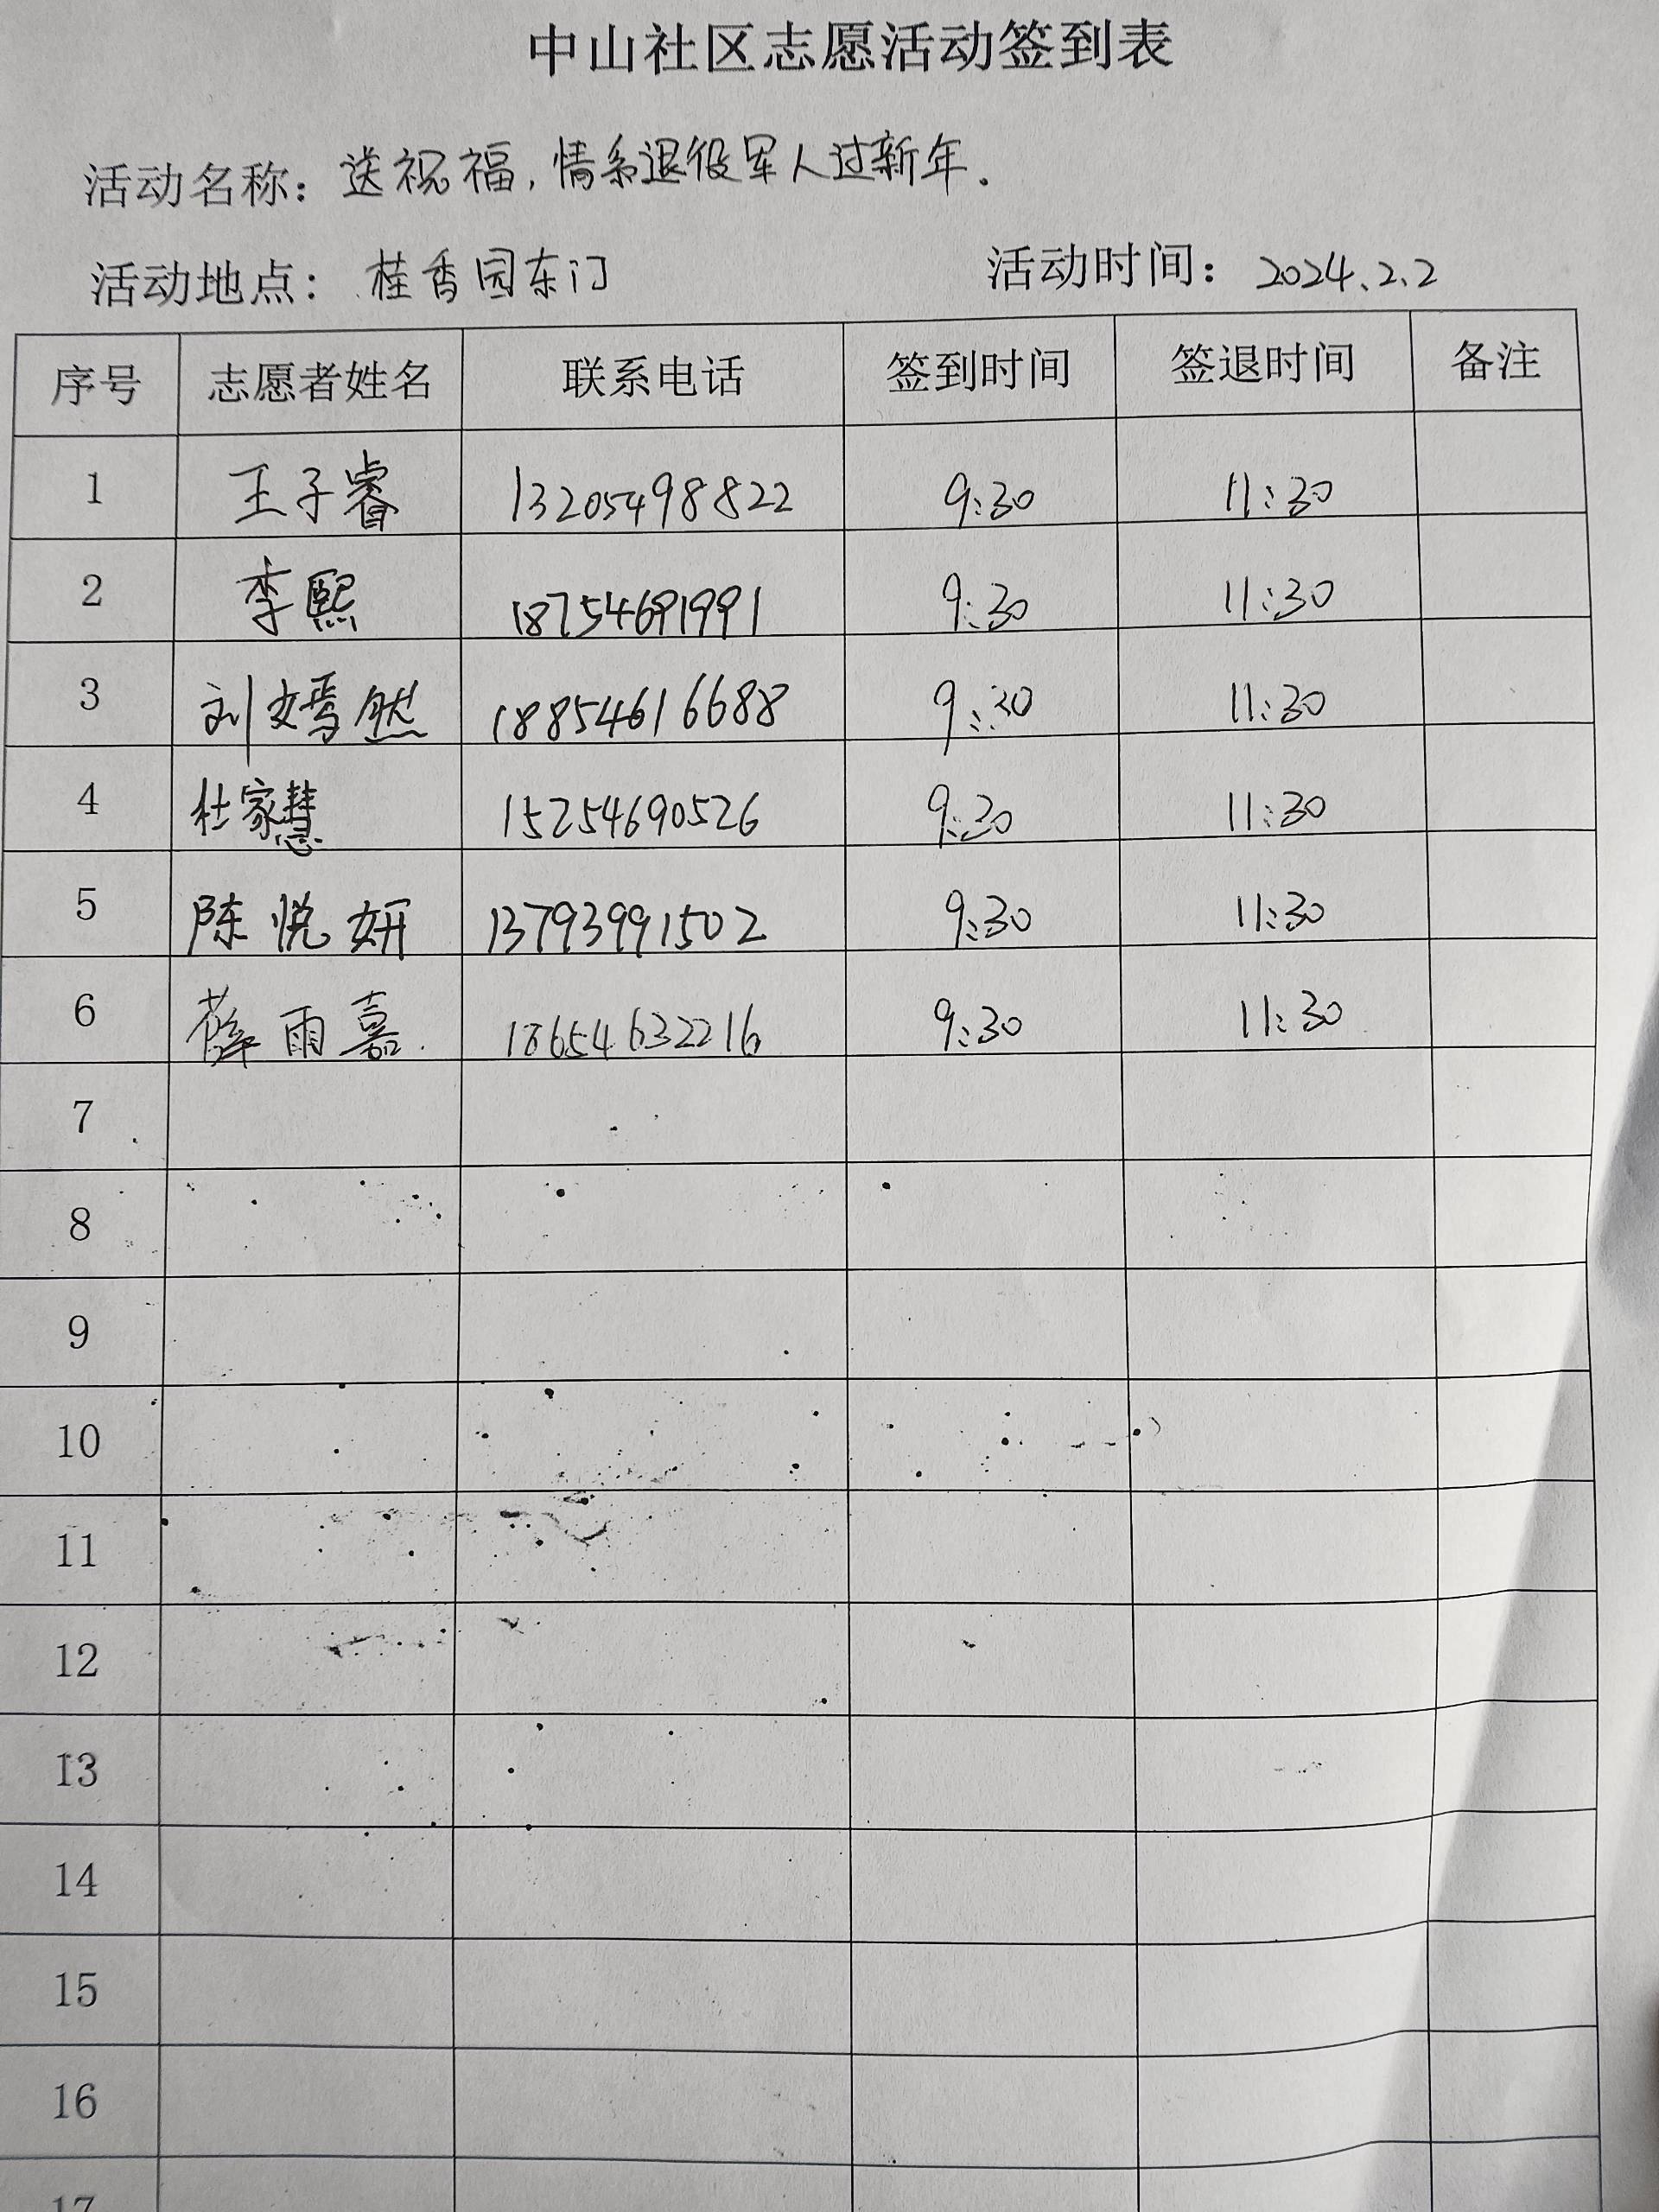 中山社区志愿活动签到表
活动名称: 送祝福,情系退役军人过新年.
活动地点: 桂香园东门 活动时间: 2024.2.2
序号 志愿者姓名 联系电话 签到时间 签退时间 备注
1 王子睿 13205498822 9:30 11:30
2 李熙 18754691991 9:30 11:30
3 刘嫣然 18854616688 9:30 11:30
4 杜家慧 15254690526 9:30 11:30
5 陈悦妍 13793991502 9:30 11:30
6 薛雨嘉 18654632216 9:30 11:30
7
8
9
10
11
12
13
14
15
16
17